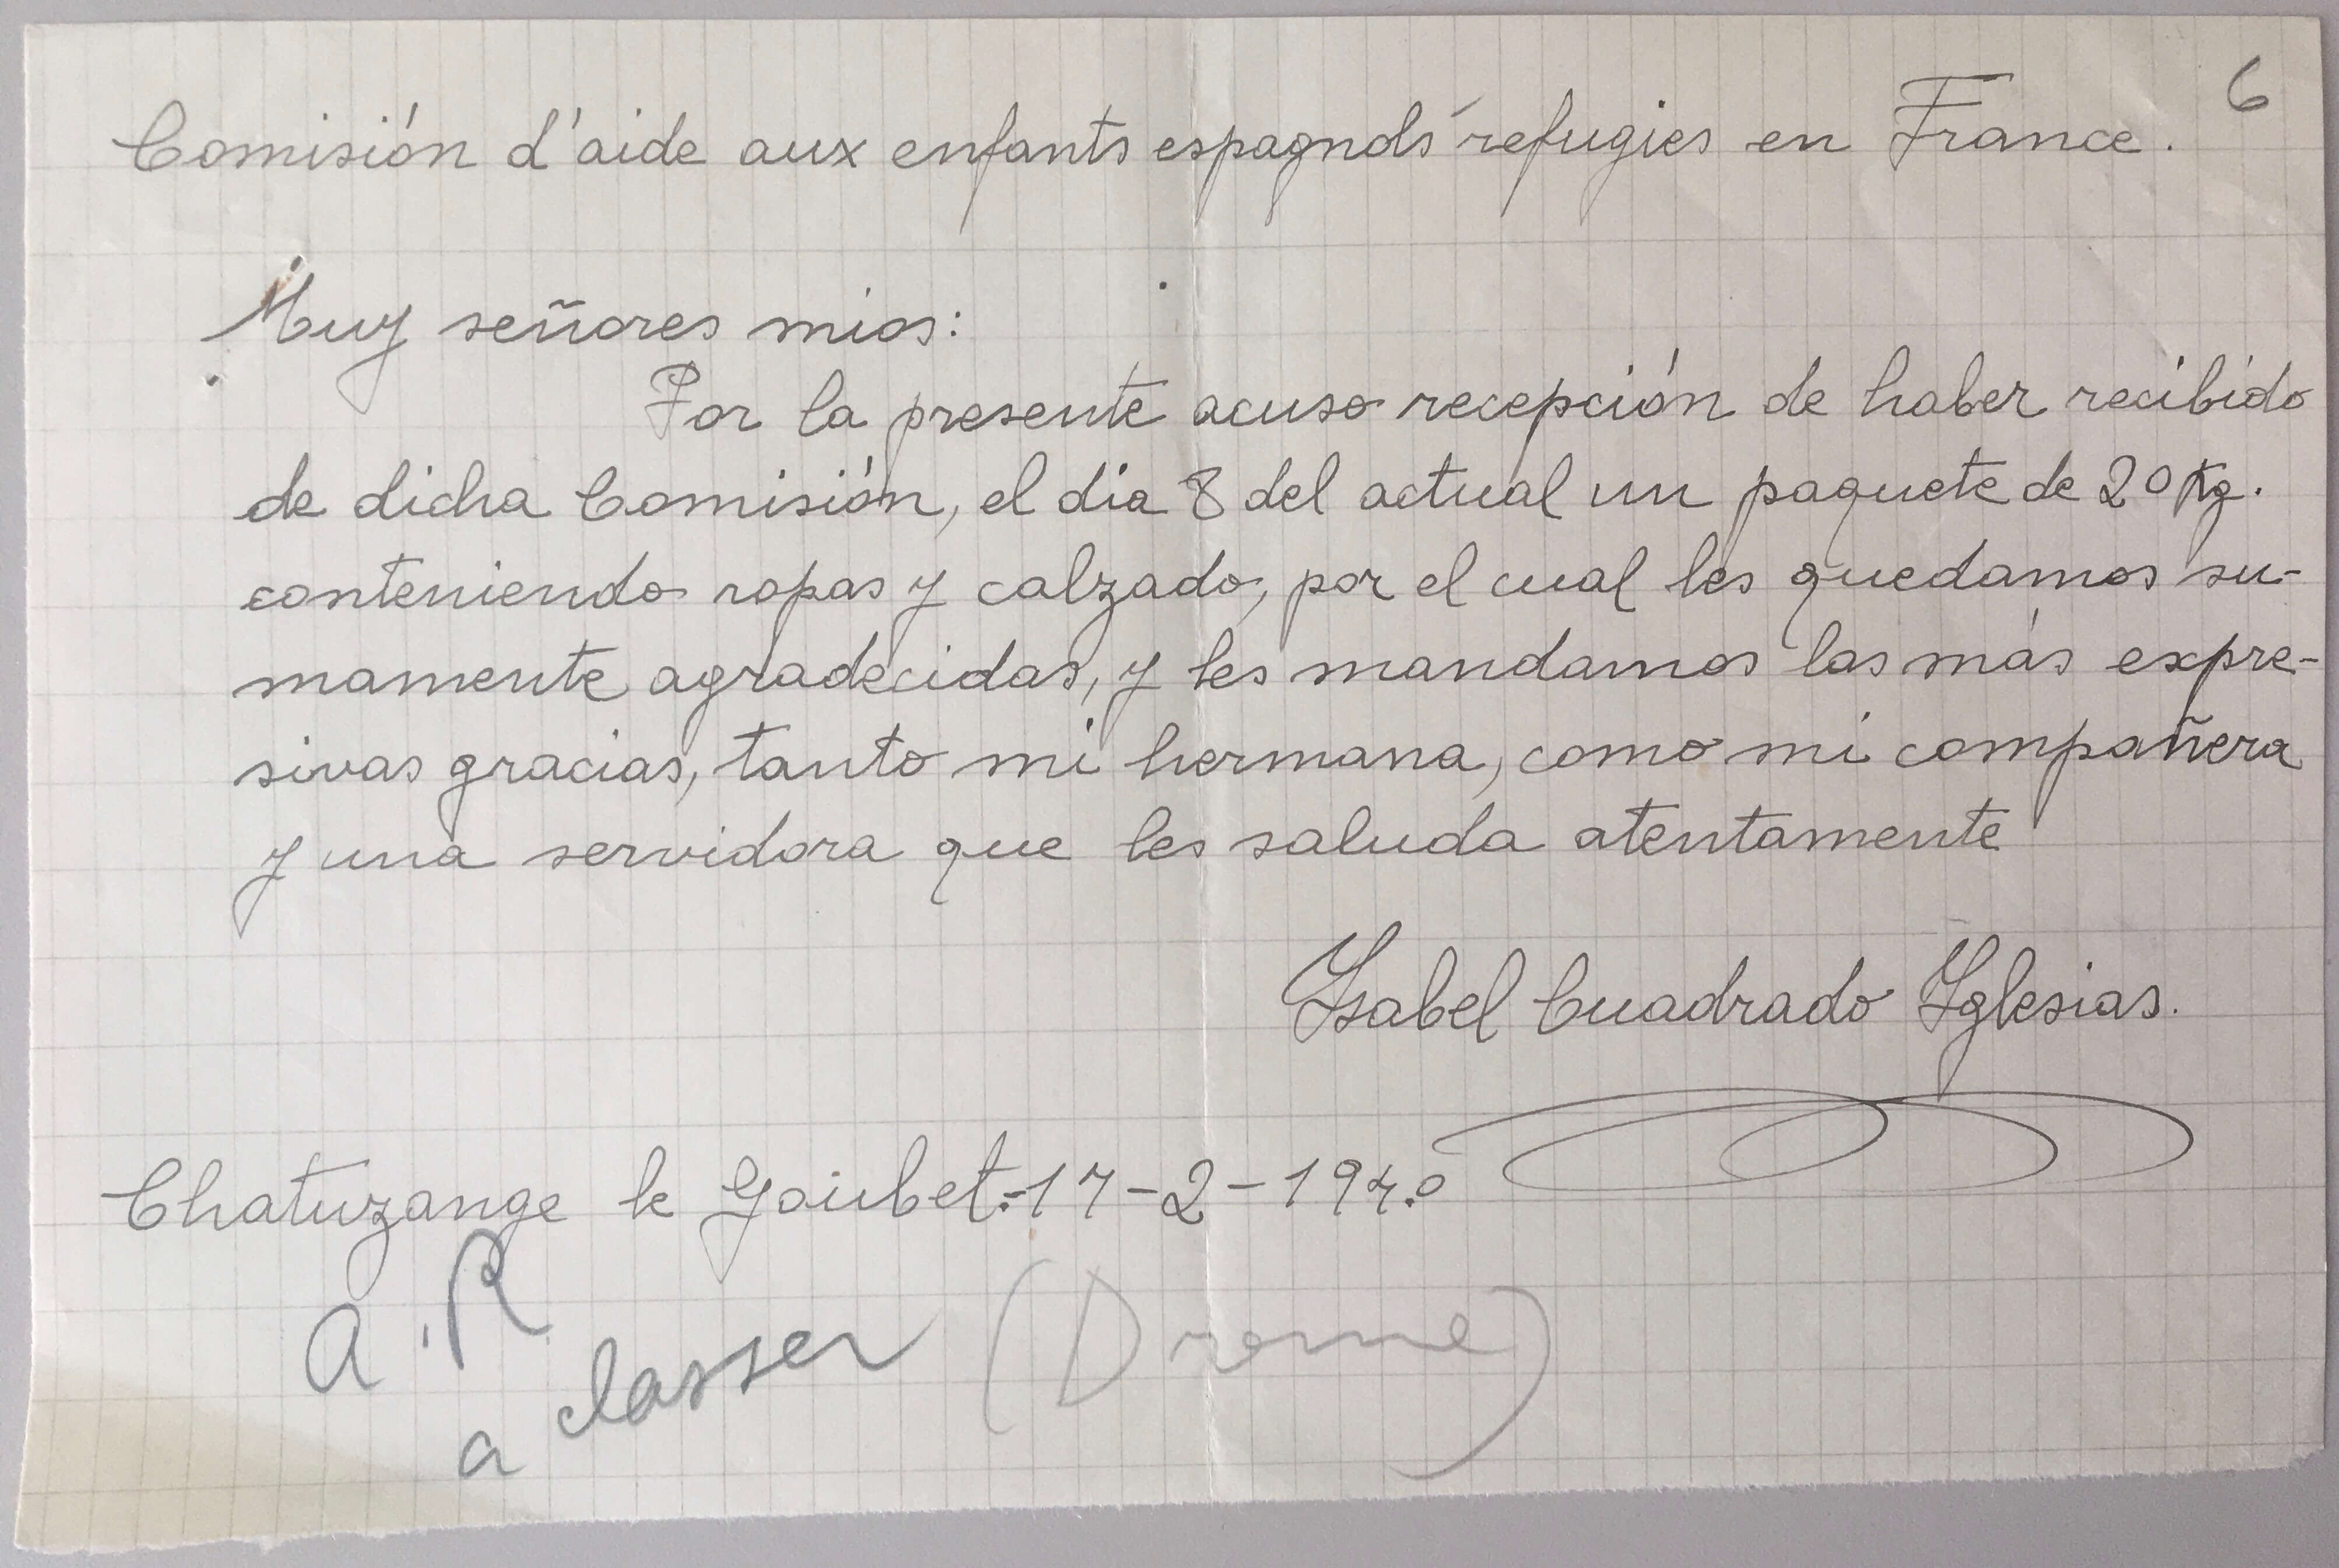 6
Comisión d'aide aux enfants espagnols refugies en France.
Muy señores mios:
Por la presente acuso recepción de haber recibido
de dicha Comisión, el dia 8 del actual un paquete de 20 Kg.
conteniendo ropas y calzado, por el cual les quedamos su-
mamente agradecidas, y les mandamos las más expre-
sivas gracias, tanto mi hermana, como mi compañera
y una servidora que les saluda atentamente
Isabel Cuadrado Iglesias.
Chatuzange le Goubet.-17-2-1940
A.R
a classer (Drome)